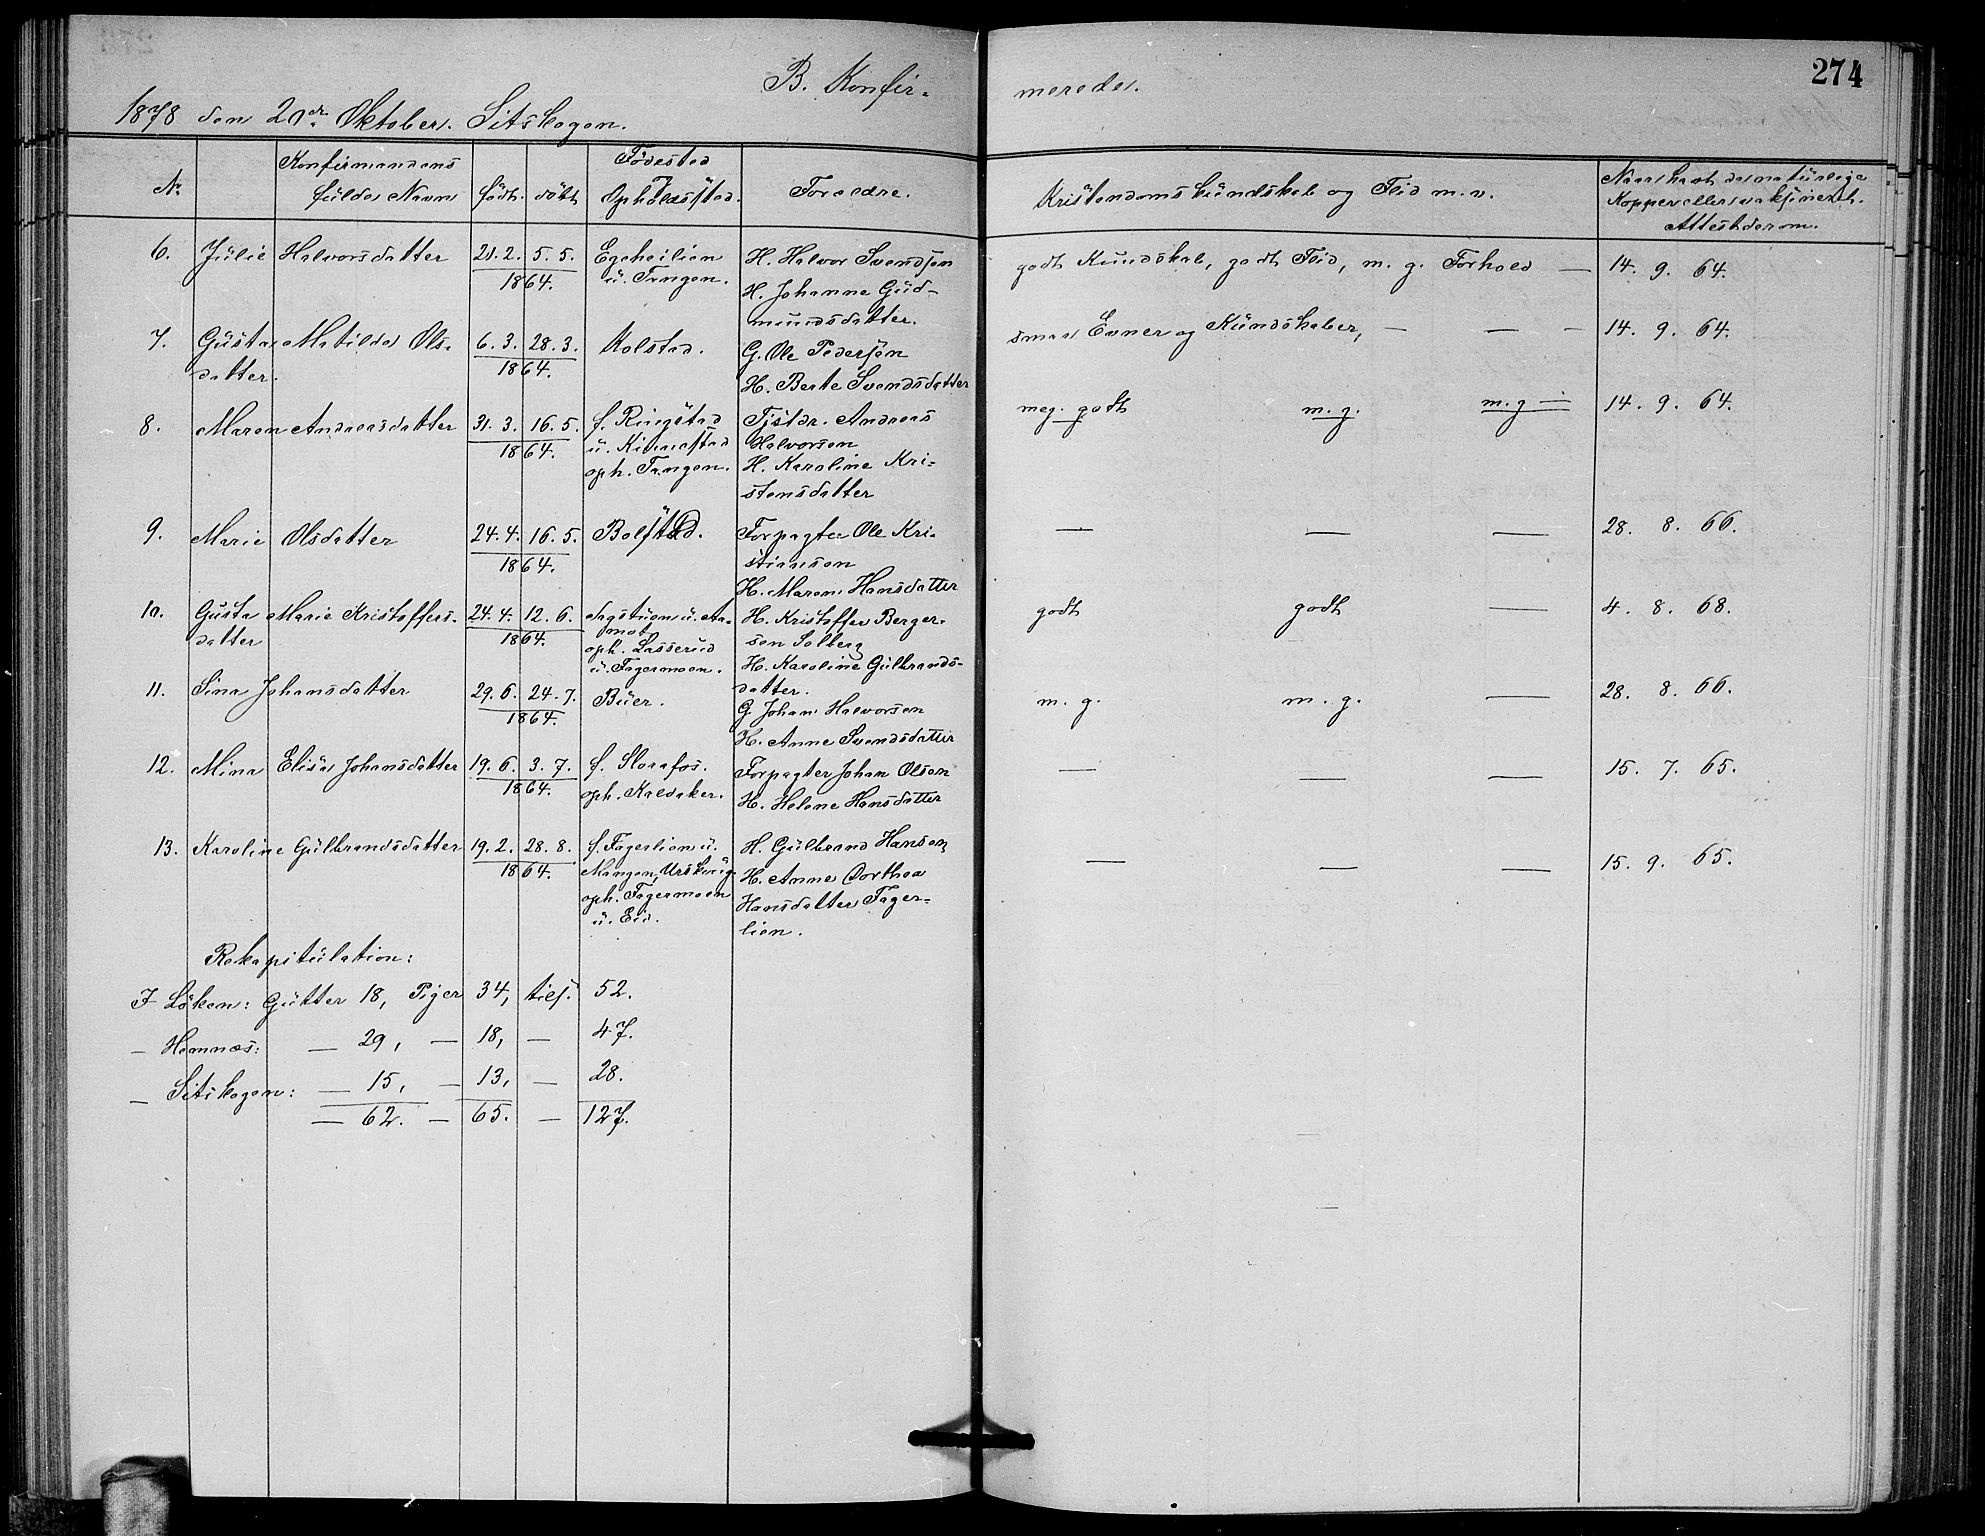 274
B. Konfir- merede.
1878 den 20de Oktober. Sitskogen.
No. Konfirmandens fulde Navn født. döbt Födested Opholdssted. Forældre. Kristendomskundskab og Flid m.v. Naar havt de naturlige Kopper eller vaksineret. Attest derom.
6. Julie Halvorsdatter 21.2. 5.5. 1864. Egeheilien u. Tangen. H. Halvor Svendsen
H. Johanne Gud-
mundsdatter.
godt Kundskab, godt Flid, m. g. Forhold — 14. 9. 64.
7. Gusta Matilde Ols-
datter. 6.3. 28.3. 1864. Kolstad. G. Ole Pedersen
H. Berte Svendsdatter
smaa Evner og Kundskaber, — — — 14. 9. 64.
8. Maren Andreasdatter 31.3. 16.5. 1864. f. Ringstad
u. Kinnestad
oph. Tangen. Tjstdr. Andreas
Halvorsen
H. Karoline Kri-
stensdatter
meg. godt m.g. m.g — 14. 9. 64.
9. Marie Olsdatter 24.4. 16.5. 1864. Bolstad. Forpagter Ole Kri-
stiansen
H. Maren Hansdatter
— — — 28. 8. 66.
10. Gusta Marie Kristoffers-
datter 24.4. 12.6. 1864. Sagstuen u. Aa-
mot
oph. Lasserud
u. Fagermoen. H. Kristoffer Berger-
sen Solberg
H. Karoline Gulbrands-
datter.
godt godt — 4. 8. 68.
11. Sina Johansdatter 29.6. 24.7. 1864. Buer. G. Johan Halvorsen
H. Anne Svendsdatter
m. g. m. g. — 28. 8. 66.
12. Mina Elise Johansdatter 19.6. 3.7. 1864. f. Slorafos.
oph. Kaldaker. Forpagter Johan Olsen
H. Helene Hansdatter
— — — 15. 7. 65.
13. Karoline Gulbrandsdatter 19.2. 28.8. 1864. f. Fagerlien u.
Mangen, Urskoug
oph. Fagermoen
u. Eid. H. Gulbrand Hansen
H. Anne Dorthea
Hansdatter Fager-
lien.
— — — 15. 9. 65.
Rekapitulation:
I Löken: Gutter 18, Piger 34, tils. 52.
— Hemnæs: — 29, — 18, — 47.
— Sitskogen: — 15, — 13, — 28.
— 62. — 65. — 127.